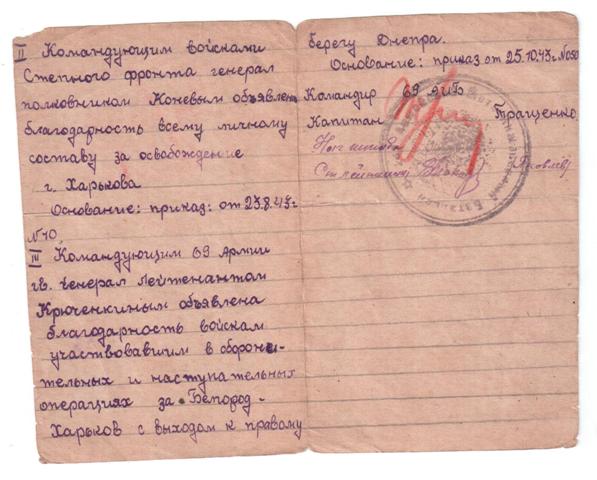 II Командующим войсками
Степного фронта генерал
полковником Коневым объявлена
благодарность всему личному
составу за освобождение
г. Харькова
Основание: приказ: от 23.8.43г.
N40.
III Командующим 69 Армии
гв. генерал лейтенантом
Крюченкиным объявлена
благодарность войскам
участвовавшим в оборони-
тельных и наступательных
операциях за Белгород-
Харьков с выходом к правому
берегу Днепра.
Основание: приказ от 25.10.43г. N050
Командир 69
Капитан Гращенко
Нач штаба
Ст лейтенант Яковлев